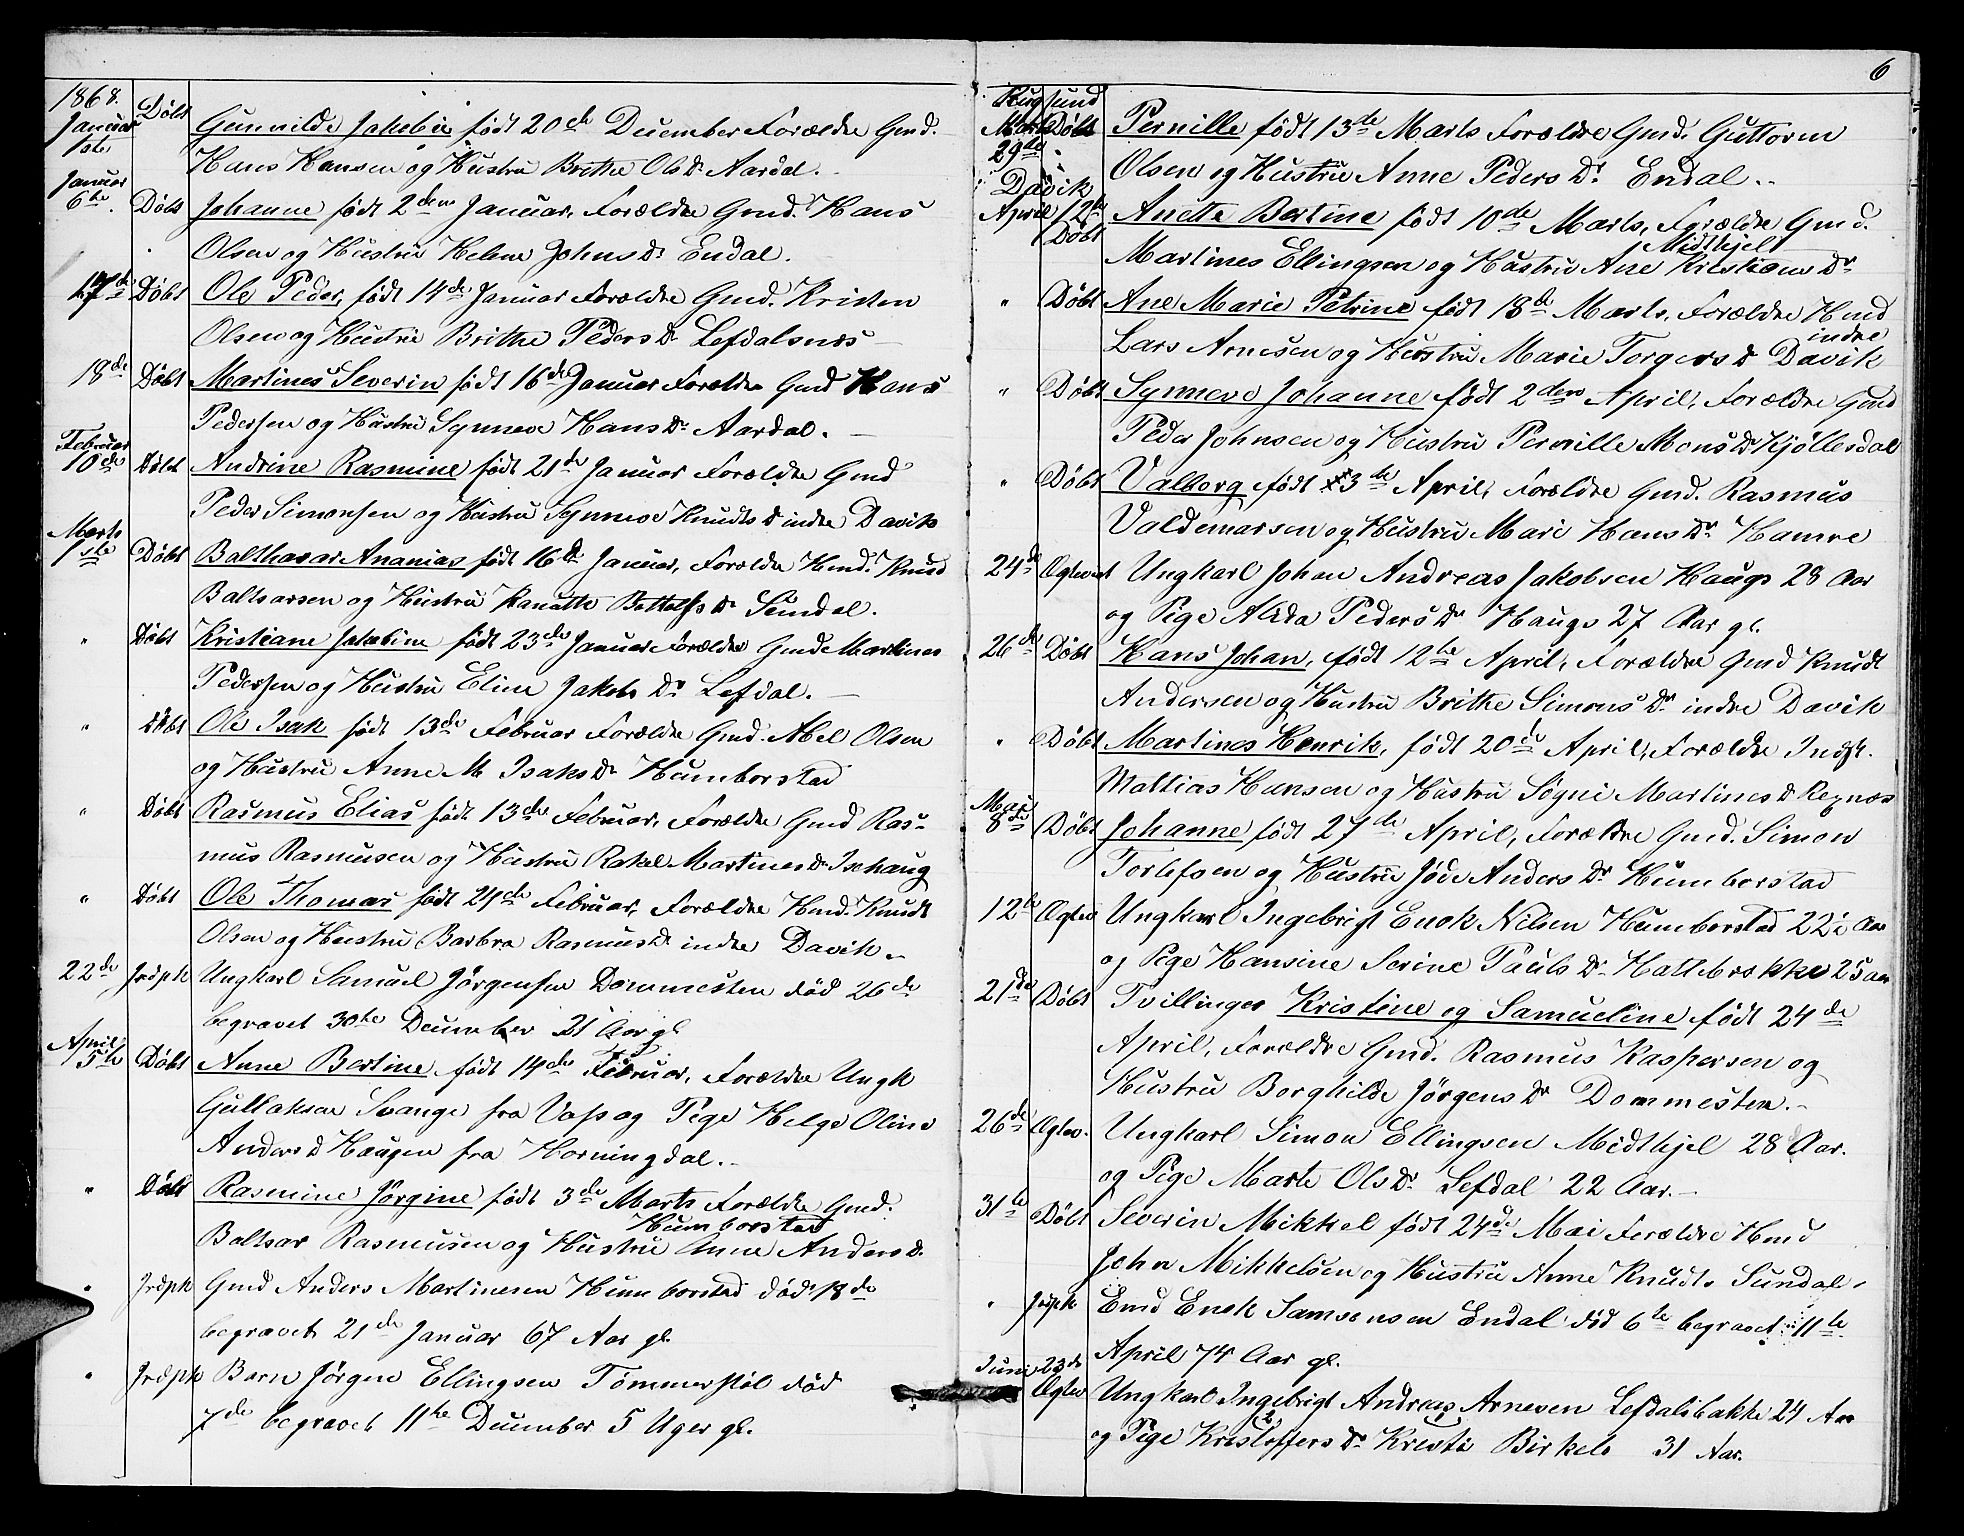 1868.
Januar 1ste Döbt Gunnilde Jakobie födt 20de December Forældre Gmd.
Hans Hansen og Hustru Brithe Ols Dr Aardal.
Januar 6te Döbt Johanne födt 2den Januar, Forældre Gmd. Hans
Olsen og Hustru Helene Johns Dr Endal.
17de Döbt Ole Peder, födt 14de Januar Forældre Gmd. Kristen
Olsen og Hustru Brithe Peders Dr Lefdalsnæs
18de Döbt Martines Severin födt 16de Januar Forældre Gmd Hans
Pedersen og Hustru Synneve Hans Dr Aardal.
Februar 10de Döbt Andrine Rasmine födt 21de Januar Forældre Gmd
Peder Simonsen og Hustru Synneve Knudts D indre Davik
Marts 1ste Döbt Balthasar Ananias födt 16de Januar, Forældre Hmd. Knud
Baltsarsen og Hustru Dr Sundal.
" Döbt Kristiane Jakobine födt 23de Januar Forældre Gmd Martines
Pedersen og Hustru Eline Jakobs Dr Lefdal.
" Döbt Ole Isak födt 13de Februar Forældre Gmd. Abel Olsen
og Hustru Anne M Isaks Dr Humborstad
" Döbt Rasmus Elias födt 13de Februar, Forældre Gmd Ras-
mus Rasmusen og Hustru Rakel Martines Dr Isehaug
" Döbt Ole Thomas födt 24de Februar, Forældre Hmd. Knudt
Olsen og Hustru Barbra Rasmus Dr indre Davik.
22de Jrdpk Ungkarl Samuel Jörgensen Dommesten död 26de
begravet 30te December 21 Aar gl
April 5te Döbt Anne Bertine födt 14de Februar, Forældre Ungk
Gullaksen Svange fra Vass og Pige Helge Oline
Anders D Haugen fra Horningdal.
" Döbt Rasmine Jörgine födt 3de Marts Forældre Gmd.
Humborstad
Baltsar Rasmusen og Hustru Anne Anders D.
" Jrdpk Gmd Anders Martinesen Humborstad död 18de
begravet 21de Januar 67 Aar gl.
" Jrdpk Barn Jörgen Ellingsen Tömmerstöl död
7de begravet 11te December 5 Uger gl.
6
Rugsund
Marts 29te Döbt Pernille födt 13de Marts Forældre Gmd. Guttorm
Olsen og Hustru Anne Peders Dr Endal.
Davik
April 12te Döbt Anette Bertine födt 10de Marts, Forældre Gmd.
Midthjel
Martines Ellingsen og Hustru Ane Kristians Dr
" Döbt Ane Marie Petrine födt 18de Marts, Forældre Hmd
indre
Lars Arnesen og Hustru Marie Torgers D Davik
" Döbt Synneve Johanne födt 2den April, Forældre Gmd
Peder Johnsen og Hustru Pernille Mons D Kjöllesdal
" Döbt Valborg födt 3de April, Forældre Gmd. Rasmus
Valdemarsen og Hustru Mari Hans Dr Hamre
24de Ægtev Ungkarl Johan Andreas Jakobsen Hauge 28 Aar
og Pige Alida Peders Dr Hauge 27 Aar gl.
26de Döbt Hans Johan, födt 12te April, Forældre Gmd Knudt
Andersen og Hustru Brithe Simons Dr indre Davik
" Döbt Martines Henrik, födt 20de April, Forældre Indst.
Mattias Hansen og Hustru Søgni Martines D Regnæs
Mai 8de Döbt Johanne födt 27de April, Forældre Gmd. Simon
Torlefsen og Hustru Jöde Anders Dr Humborstad
12te Ægtev Ungkarl Ingebrigt Enok Nilsen Humborstad 22½ Aar
og Pige Hansine Serine Pauls Dr Hattebrække 25 aar
21de Döbt Tvillinger Kristine og Samueline födt 24de
April, Forældre Gmd. Rasmus Kaspersen og
Hustru Borghilde Jörgens Dr Dommesten.
26de Ægtev. Ungkarl Simon Ellingsen Midthjel 28 Aar.
og Pige Marte Ols Dr Lefdal 22 Aar.
31te Döbt Severin Mikkel födt 24de Mai Forældre Hmd
John Mikkelsen og Hustru Anne Knudts Sundal.
" Jrdpk Emd Enok Samsonsen Endal död 6te begravet 11te
April 74 Aar gl.
Juni 23de Ægtev Ungkarl Ingebrigt Andreas Arnesen Lefdalsbakke 24 Aar
og Pige Kristoffers Dr Kristi Birkelo 31 Aar.